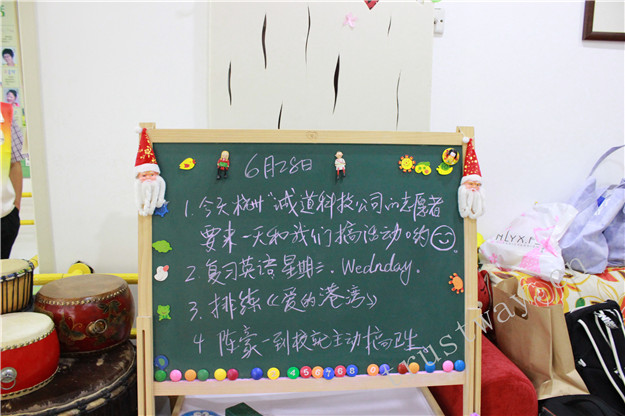 6月28日
1.今天杭州"诚道科技公司的志愿者
要来一天和我们搞活动。哟
2.复习英语 星期三. Wednday.
3.排练《爱的港湾》
4 陈豪一到校就主动搞卫生
4 5 6 7 6 8 0
NLYX.P
trustway.cn